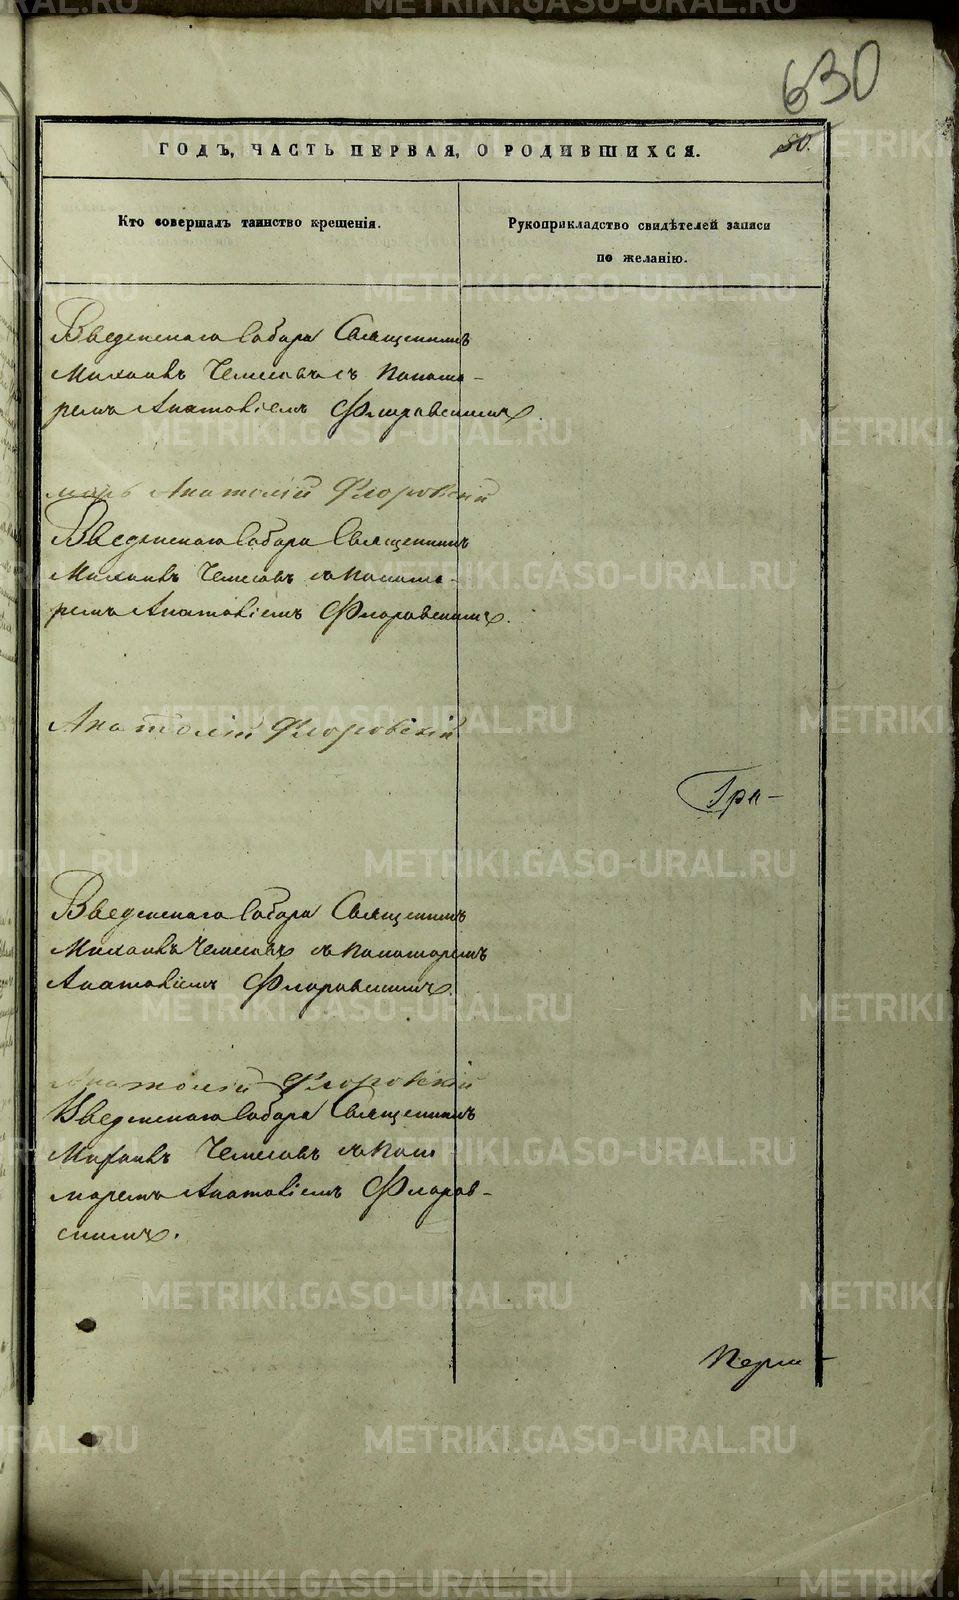 630
ГОДЪ, ЧАСТЬ ПЕРВАЯ, О РОДИВШИХСЯ.
80.
Кто совершалъ таинство крещенія.
Рукоприкладство свидѣтелей записи
по желанію.
Введенскаго Собора Священникъ
Михаилъ съ Понома-
ремъ Анатоліемъ Флоровскимъ
Анатолій Флоровскій
Введенскаго Собора Священникъ
Михаилъ съ Понома-
ремъ Анатоліемъ Флоровскимъ.
Анатолій Флоровскій
Гра-
Введенскаго Собора Священникъ
Михаилъ съ Пономаремъ
Анатоліемъ Флоровскимъ.
Анатолій Флоровскій
Введенскаго Собора Священникъ
Михаилъ съ Поно
маремъ Анатоліемъ Флоров-
скимъ.
METRIKI.GASO-URAL.RU